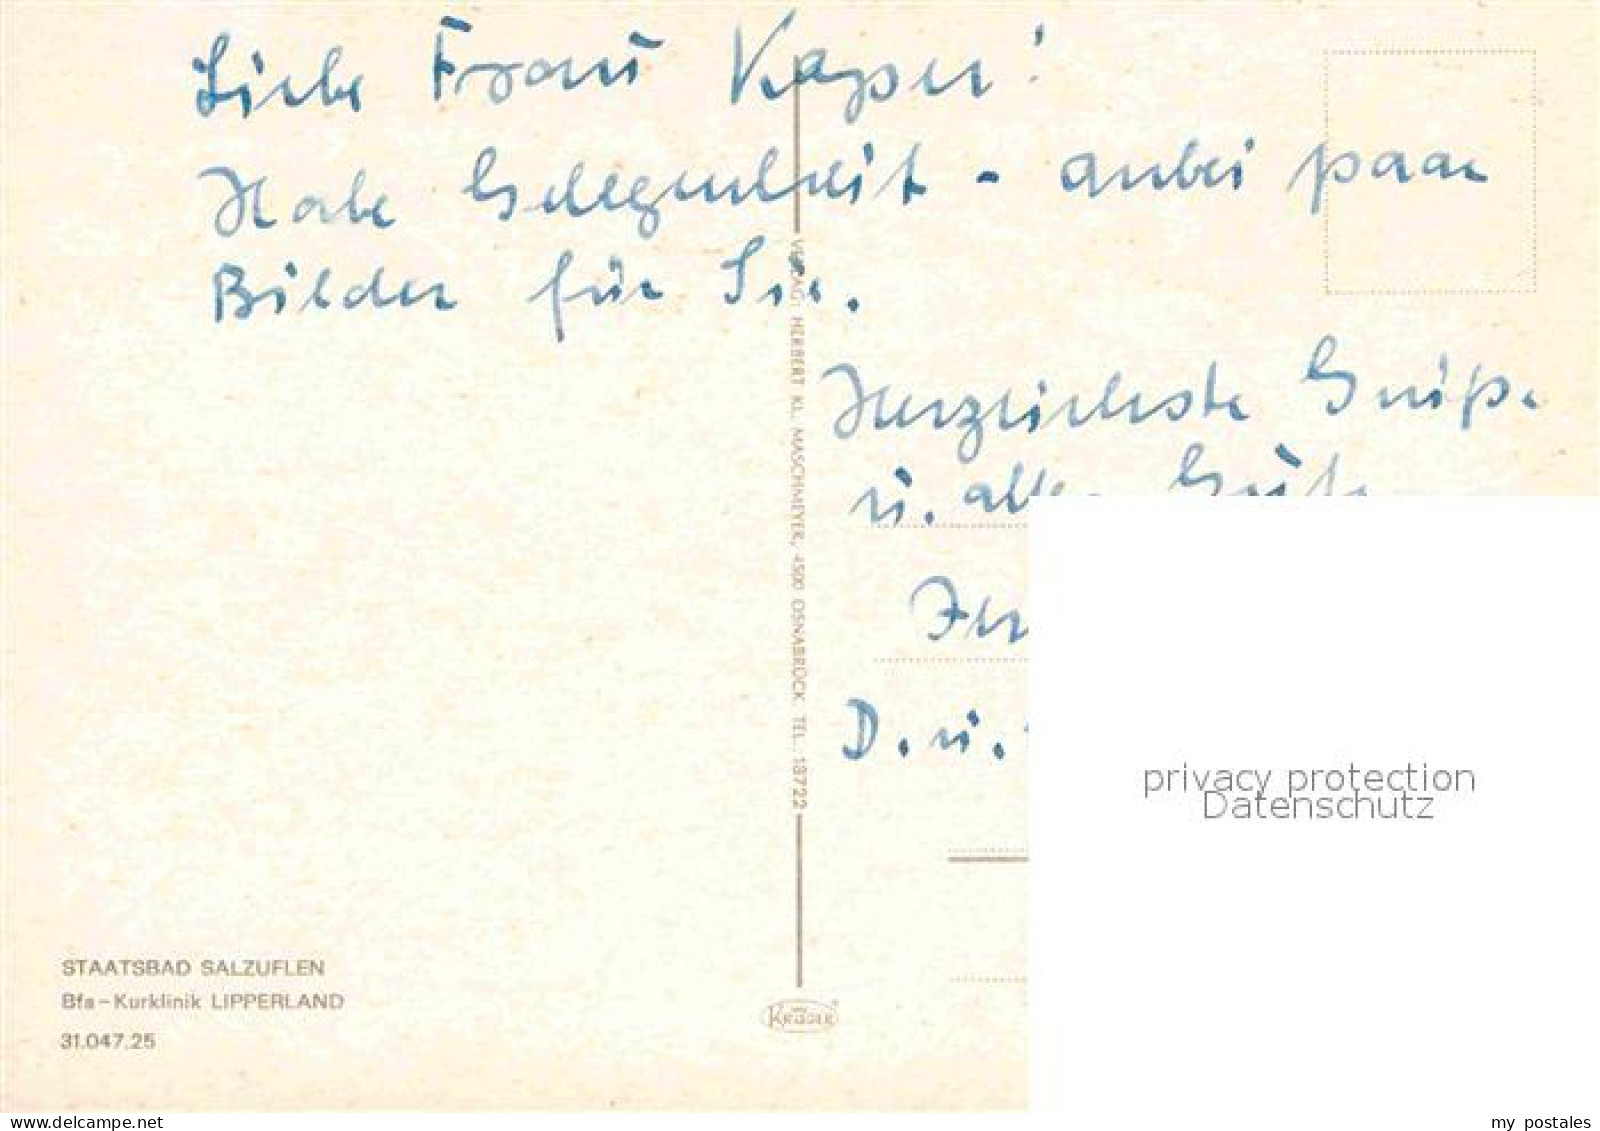 Liebe Frau Kasper!
Habe Gelegenheit - anbei paar
Bilder für Sie.
Herzlichste Grüße
u. alles Gute
D. u.
VERLAG HERBERT KL. MASCHMEYER, 4500 OSNABRÜCK TEL. 18722
STAATSBAD SALZUFLEN
Bfa-Kurklinik LIPPERLAND
31.047.25
KRÜGER
privacy protection
Datenschutz
www.delcampe.net
my_postales